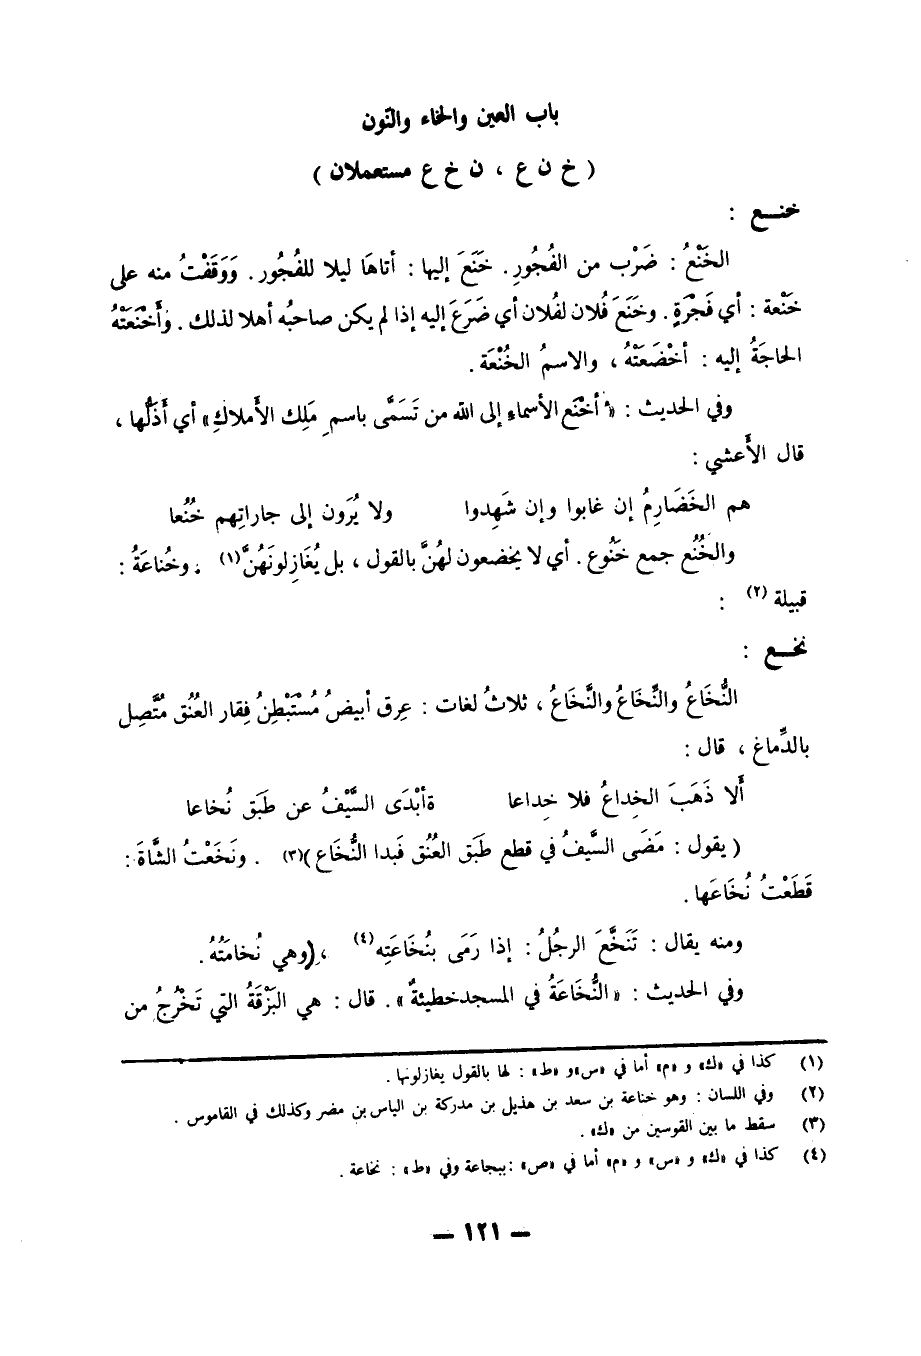 باب العين والخاء والنّون
( خ ن ع ، ن خ ع مستعملان )
خنـــع :
الخَنْعُ : ضَرْب من الفُجُورِ . خَنَعَ إليها : أتاهَا ليلا للفُجُور . وَوَقَفْتُ منه على
خَنْعة : أي فَجْرَةٍ . وخَنَعَ فُلان لفُلان أي ضَرَعَ إليه إذا لم يكن صاحبُه أهلا لذلك . وَأَخْنَعَتْهُ
الحاجَةُ إليه : أخْضَعَتْهُ ، والاسمُ الخُنْعَة .
وفي الحديث : « أخْنَع الأسماءِ إلى الله من تَسَمَّى باسمِ مَلِك الأَملاكِ» أي أَذَلُّها ،
قال الأَعشي :
هم الخَضَارِمُ إن غابوا وإن شَهِدوا ولا يُرَون إلى جاراتِهم خُنُعا
والخُنُع جمع خَنُوع . أي لا يخضعون لهُنَّ بالقول ، بل يُغَازِلونَهُنَّ (١) . وخُناعَةُ :
قبيلة (٢) :
نخـــع :
النُّخَاعُ والنِّخَاعُ والنَّخَاعُ ، ثلاثُ لغات : عِرق أبيضُ مُسْتَبْطِنُ فِقار العُنُق مُتَّصِل
بالدِّماغ ، قال :
أَلا ذَهَبَ الخِداعُ فلا خِداعا ةأبْدَى السَّيْفُ عن طَبَق نُخاعا
( يقول : مَضَى السَّيفُ في قطع طَبَق العُنُق فَبدا النُّخَاع )(٣) . ونَخَعْتُ الشَّاةَ :
قَطَعْتُ نُخَاعَها .
ومنه يقال : تَنَخَّعَ الرجُلُ : إذا رَمَى بنُخَاعَتِه (٤) ، (وهي نُخامَتُهُ .
وفي الحديث : «النُّخَاعَةُ في المسجد خطيئةٌ» . قال : هي البَزْقَةُ التي تَخْرُجُ من
(١) كذا في «ك» و «م» أما في «س» و «ط» : لها بالقول يغازلونها .
(٢) وفي اللسان : وهو خناعة بن سعد بن هذيل بن مدركة بن الياس بن مضر وكذلك في القاموس .
(٣) سقط ما بين القوسين من «ك» .
(٤) كذا في «ك» و «س» و «م» أما في «ص» : ببجاعة وفي «ط» : نخاعة .
– ١٢١ –